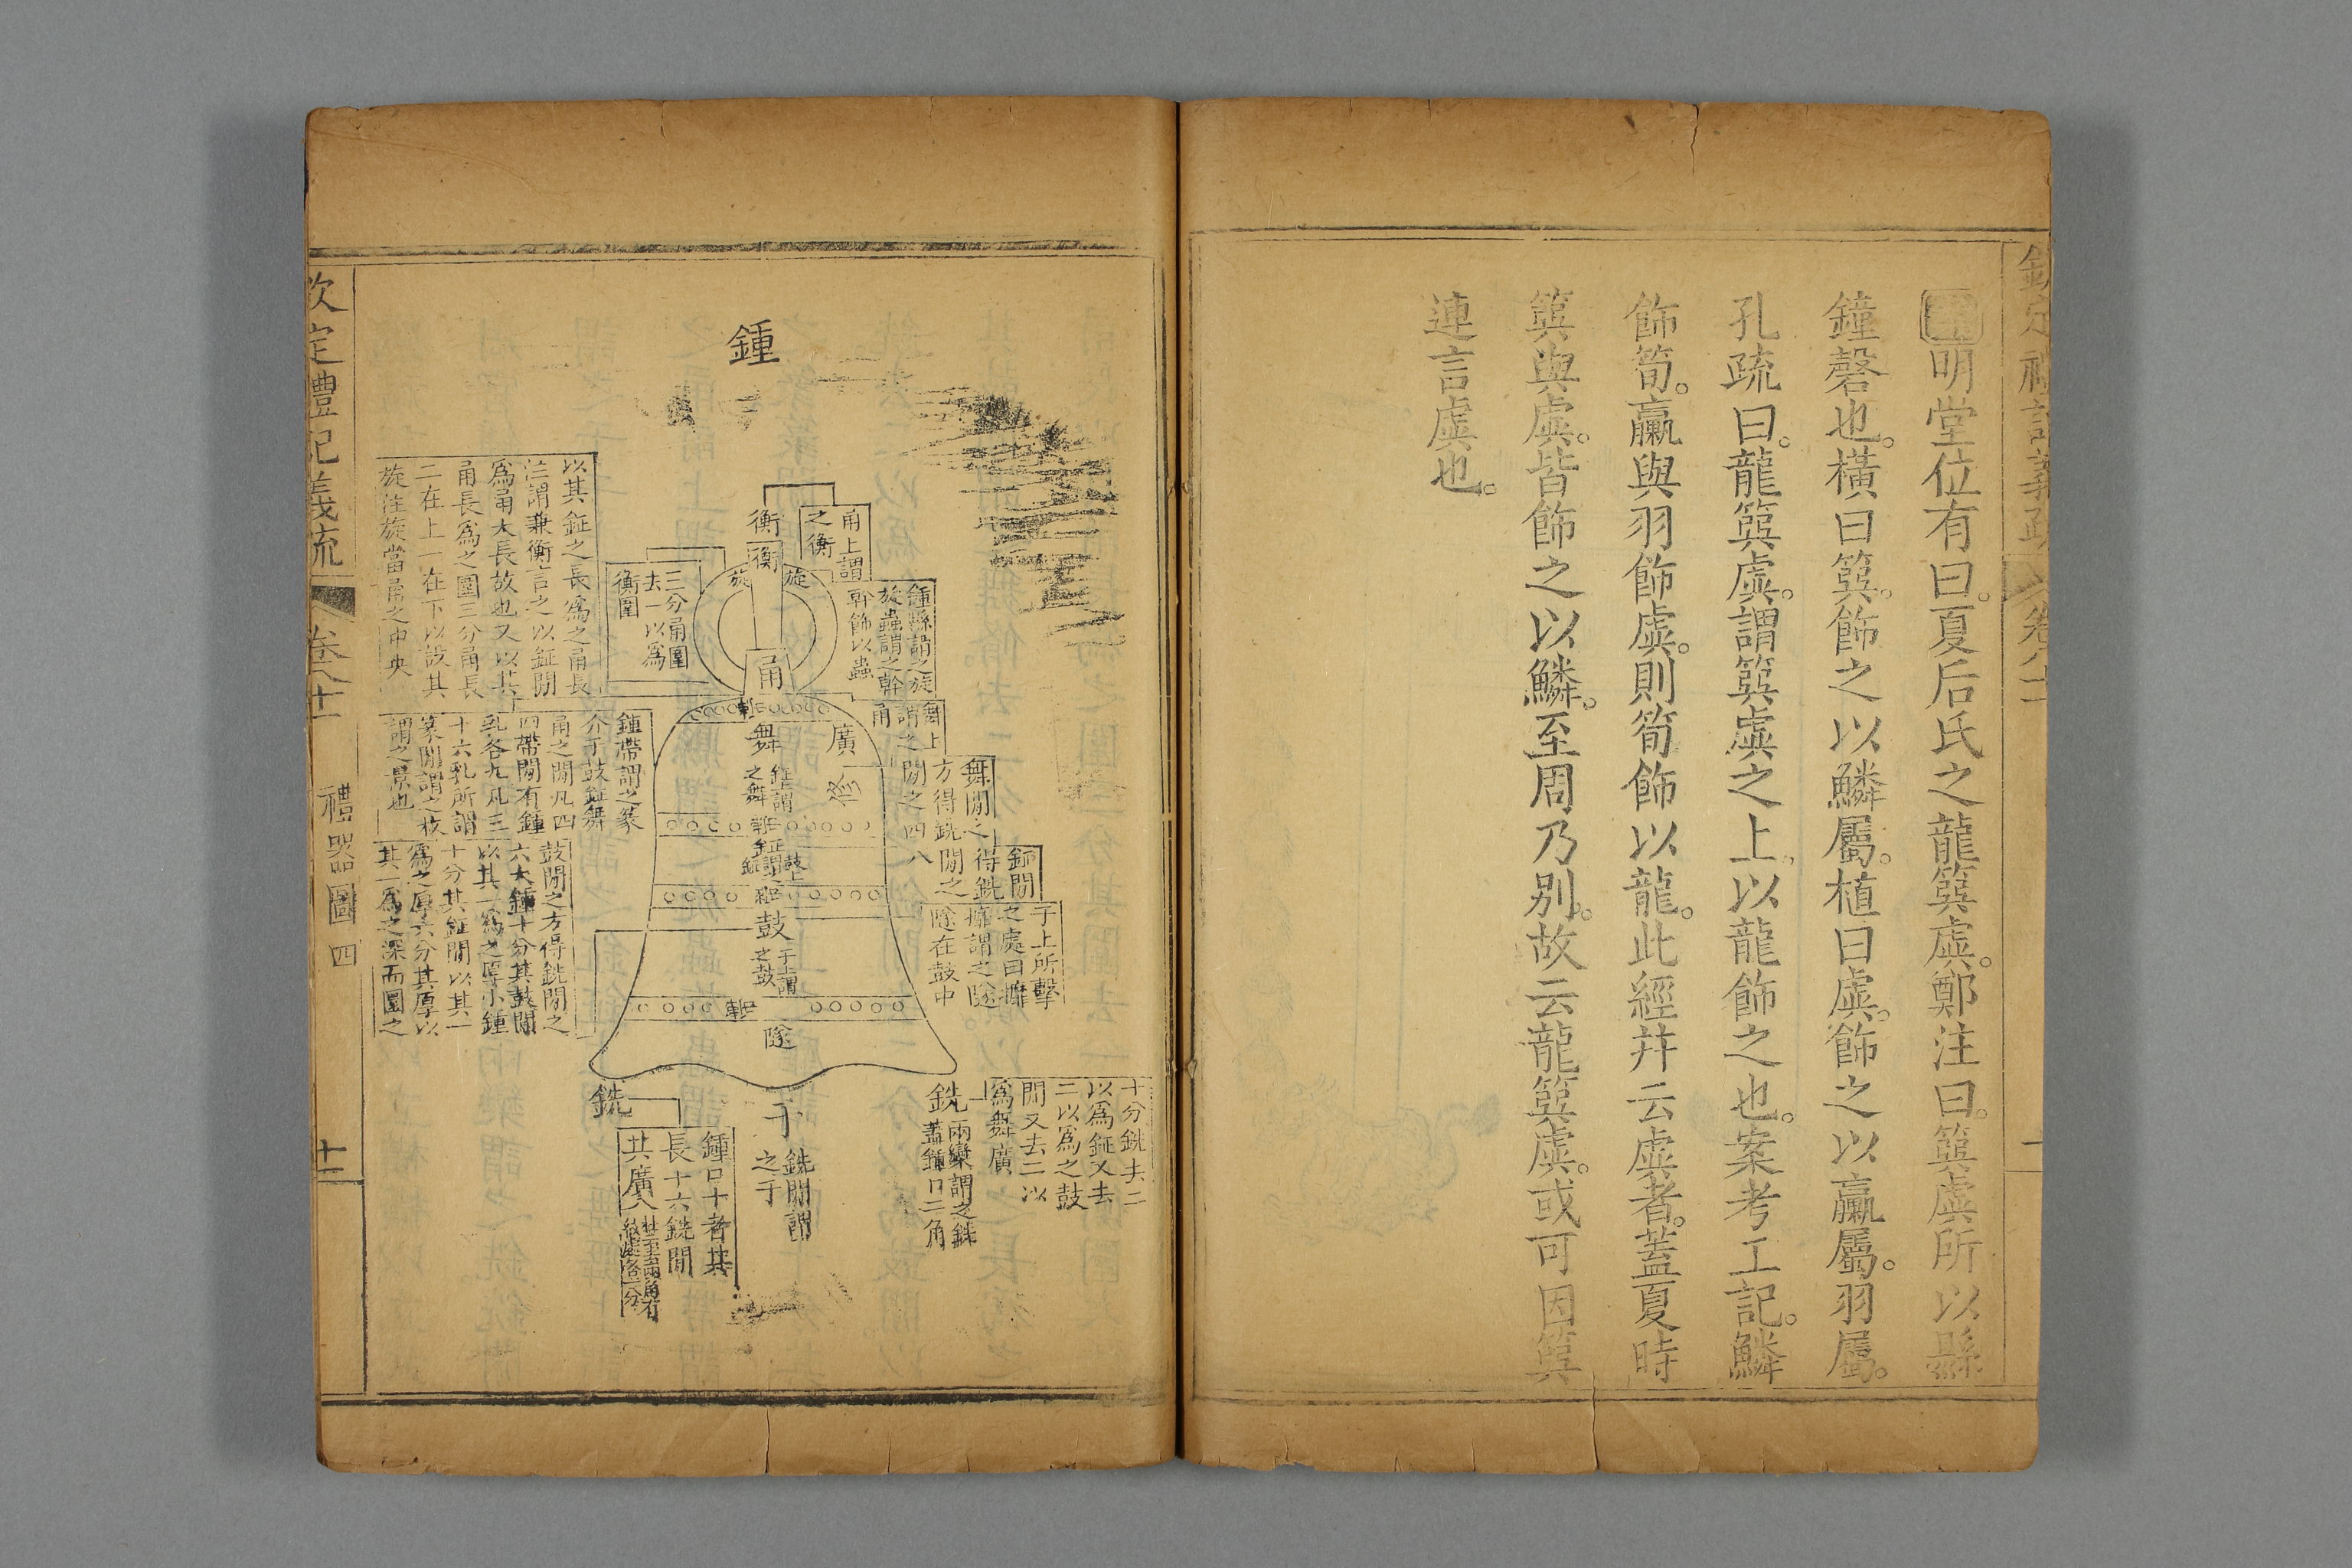 明堂位有曰。夏后氏之龍簨虡。鄭注曰。簨虡所以縣
鐘磬也。橫曰簨。飾之以鱗屬。植曰虡。飾之以臝屬。羽屬。
孔疏曰。龍簨虡。謂簨虡之上。以龍飾之也。案考工記。鱗
飾筍。臝與羽飾虡。則筍飾以龍。此經幷云虡者。蓋夏時
簨與虡。皆飾之以鱗。至周乃別。故云龍簨虡。或可因簨
連言虡也。
鍾
衡
衡
甬上謂
之衡
旋
旋
鍾縣謂之旋
旋蟲謂之幹
幹飾以蟲
三分甬圍
去一以爲
衡圍
甬
以其鉦之長爲之甬長
注謂兼衡言之以鉦閒
爲甬大長故也又以其
甬長爲之圍三分甬長
二在上一在下以設其
旋注旋當甬之中央
舞上
謂之
甬
舞
廣
修
鉦上謂
之舞
舞閒之
方得銑
閒之四
鍾帶謂之篆
介于鼓鉦舞
甬之閒凡四
四帶閒有鍾
乳各九凡三
十六乳所謂
篆閒謂之枚
謂之景也
鉦
鼓上
謂之
鉦
得銑
閒之
八
鼓
于上謂
之鼓
于上所擊
之處曰攠
攠謂之隧
隧在鼓中
鼓閒之方得銑閒之
六大鍾十分其鼓閒
以其一爲之厚小鍾
十分其鉦閒以其一
爲之厚六分其厚以
其一爲之深而圜之
隧
銑
兩欒謂之銑
蓋鍾口二角
十分銑去二
以爲鉦又去
二以爲之鼓
閒又去二以
爲舞廣
于
銑閒謂
之于
銑
鍾口十者其
長十六銑閒
共廣八
欽定禮記義疏
卷八十一
禮器圖
四
十二